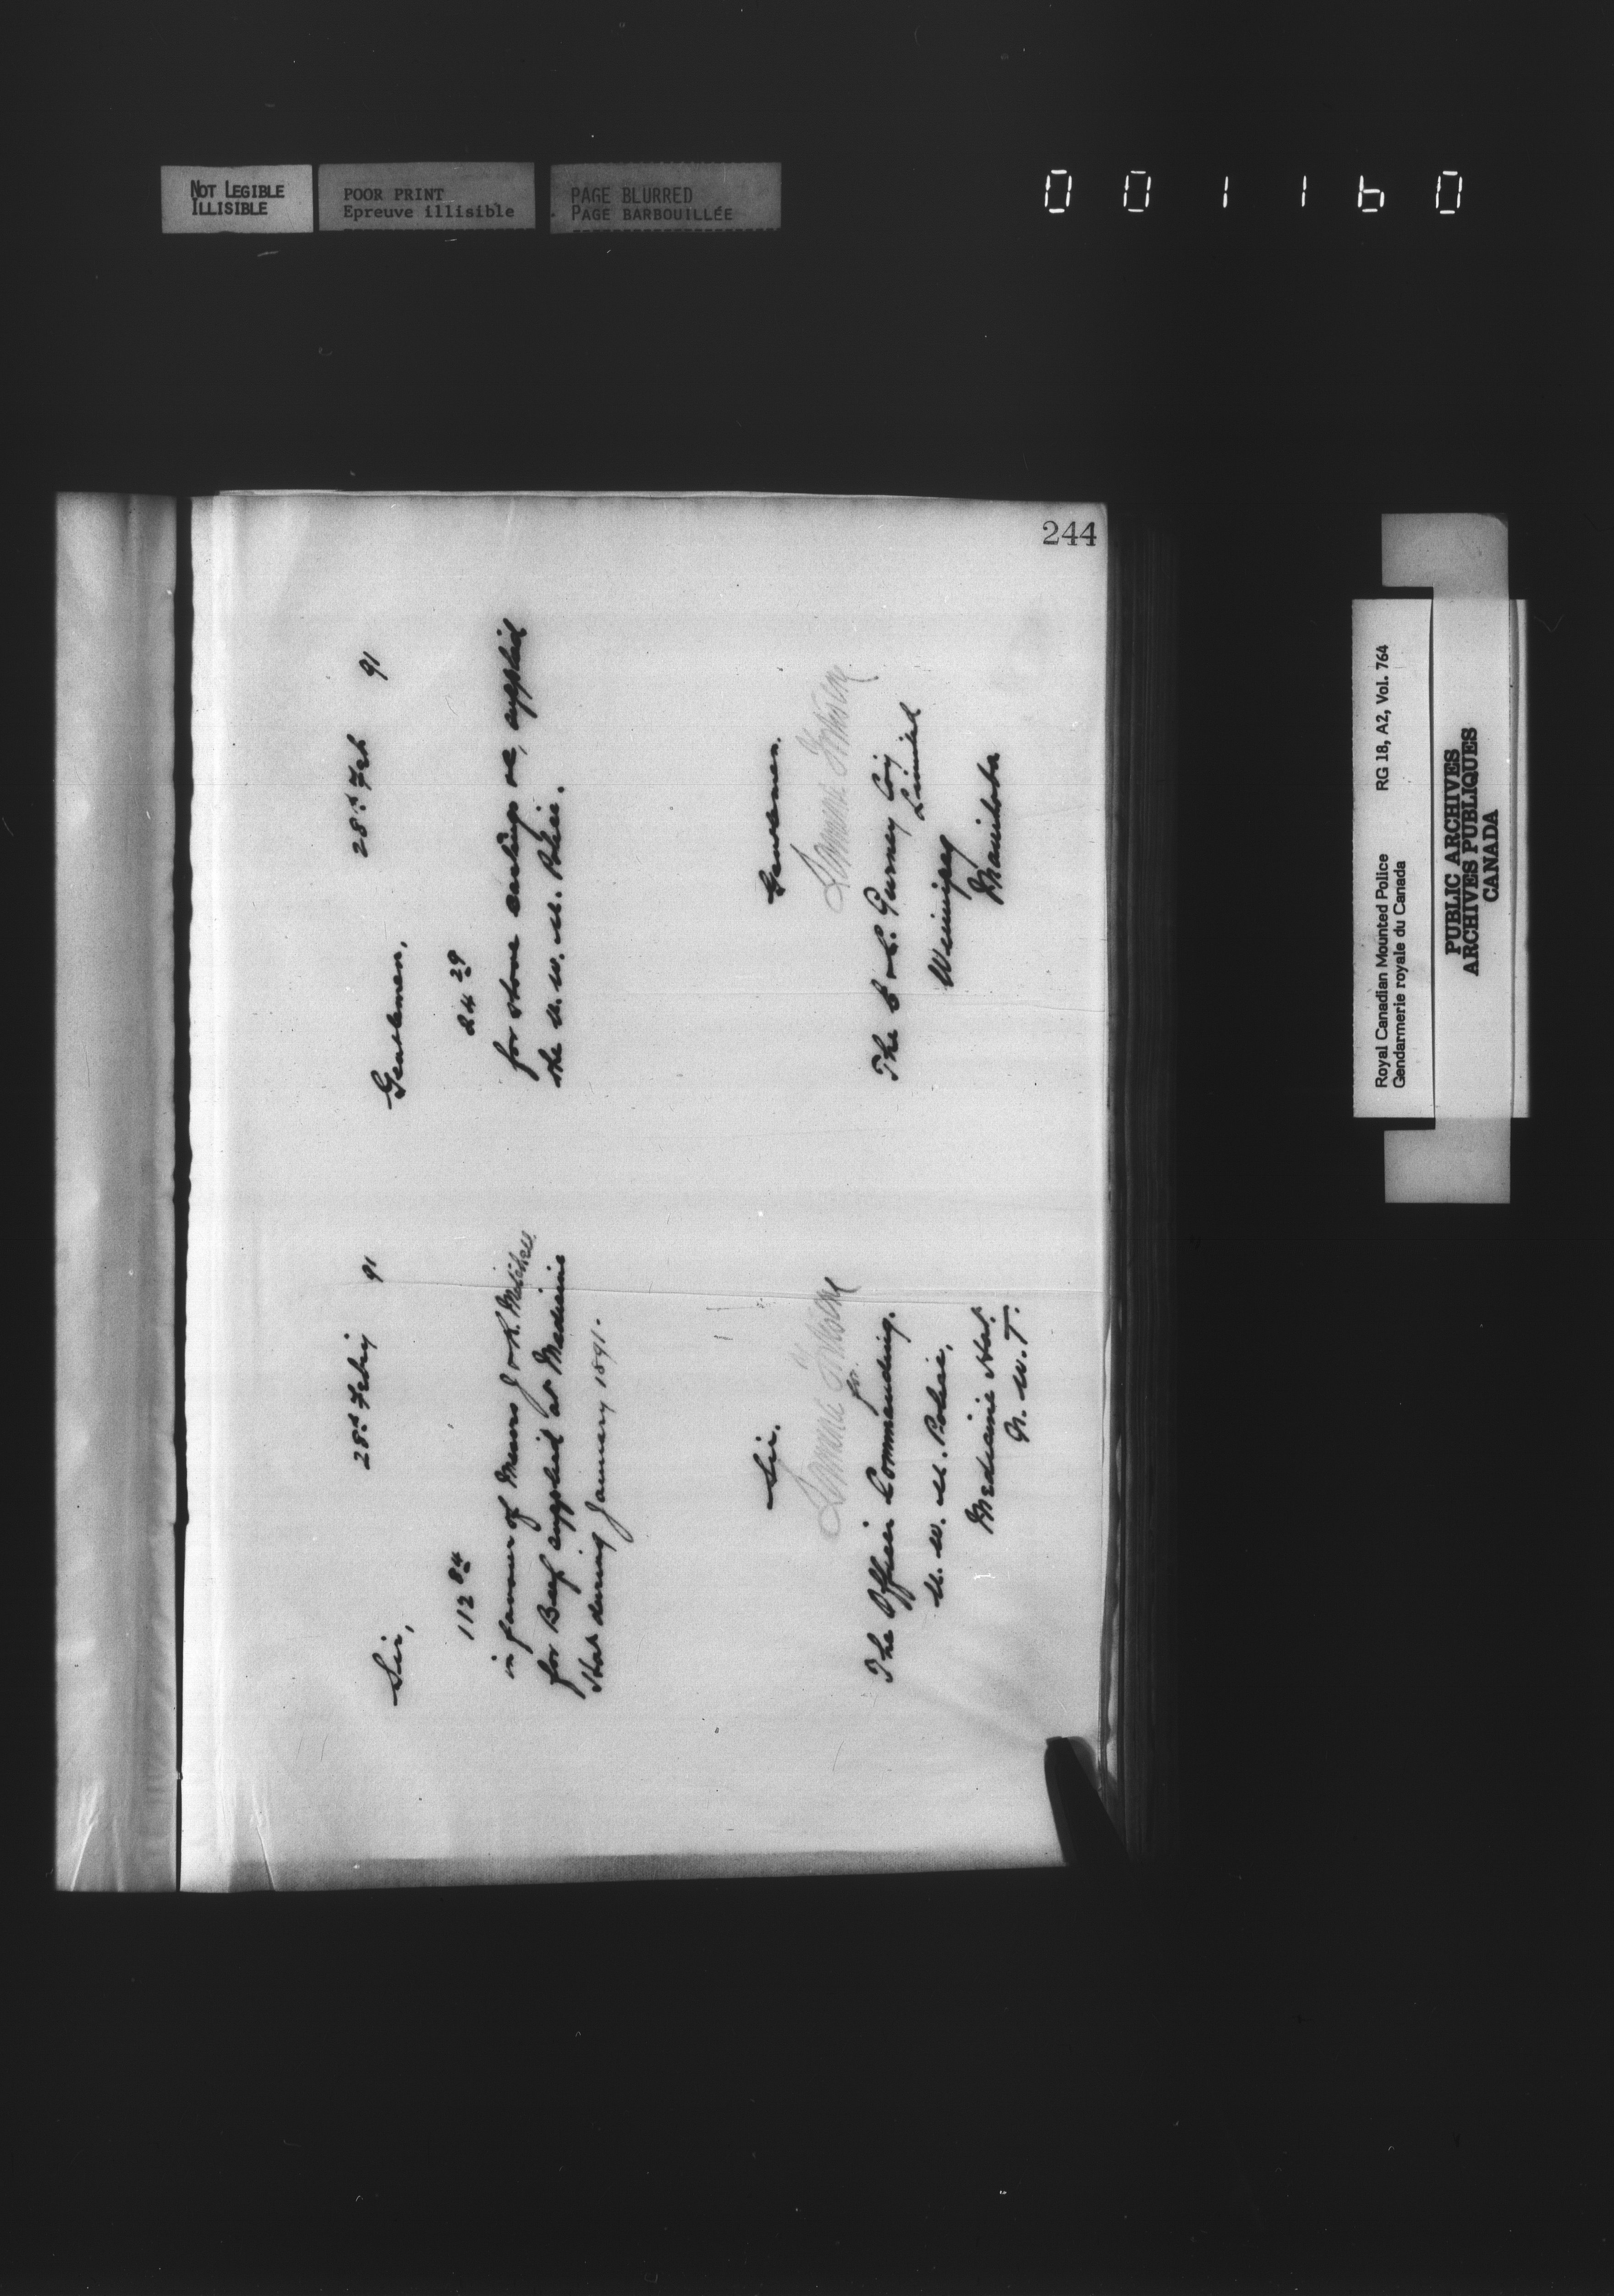 NOT LEGIBLE
ILLISIBLE
POOR PRINT
Epreuve illisible
PAGE BLURRED
PAGE BARBOUILLÉE
001160
244
28th Feby 91
Sir,
112 84
in favour of Messrs J & K. Mitchell
for Beef supplied at Medicine
Hat during January 1891.
Sir.
for
The Officer Commanding.
N. W. M. Police,
Medicine Hat.
N. W. T.
28th Feb 91
Gentlemen,
24 29
for stove castings &c, supplied
the N. W. M. Police.
Gentlemen.
The E & C. Gurney Coy
Limited
Winnipeg
Manitoba
Royal Canadian Mounted Police RG 18, A2, Vol. 764
Gendarmerie royale du Canada
PUBLIC ARCHIVES
ARCHIVES PUBLIQUES
CANADA